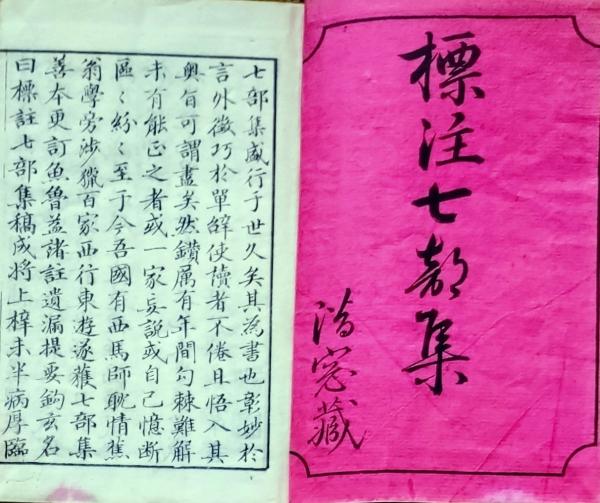 標注七部集
藏
七部集盛行于世久矣其為書也彰妙於
言外徵巧於單辭使讀者不倦且悟入其
奧旨可謂盡矣然鑽厲有年間勾棘難解
未有能正之者或一家妄説或自己憶斷
區〻紛〻至于今吾國有西馬師耽情蕉
翁學旁涉獵百家西行東遊遂獲七部集
善本更訂魚魯益諸註遺漏提要鉤玄名
曰標註七部集稿成將上梓未半病厚臨